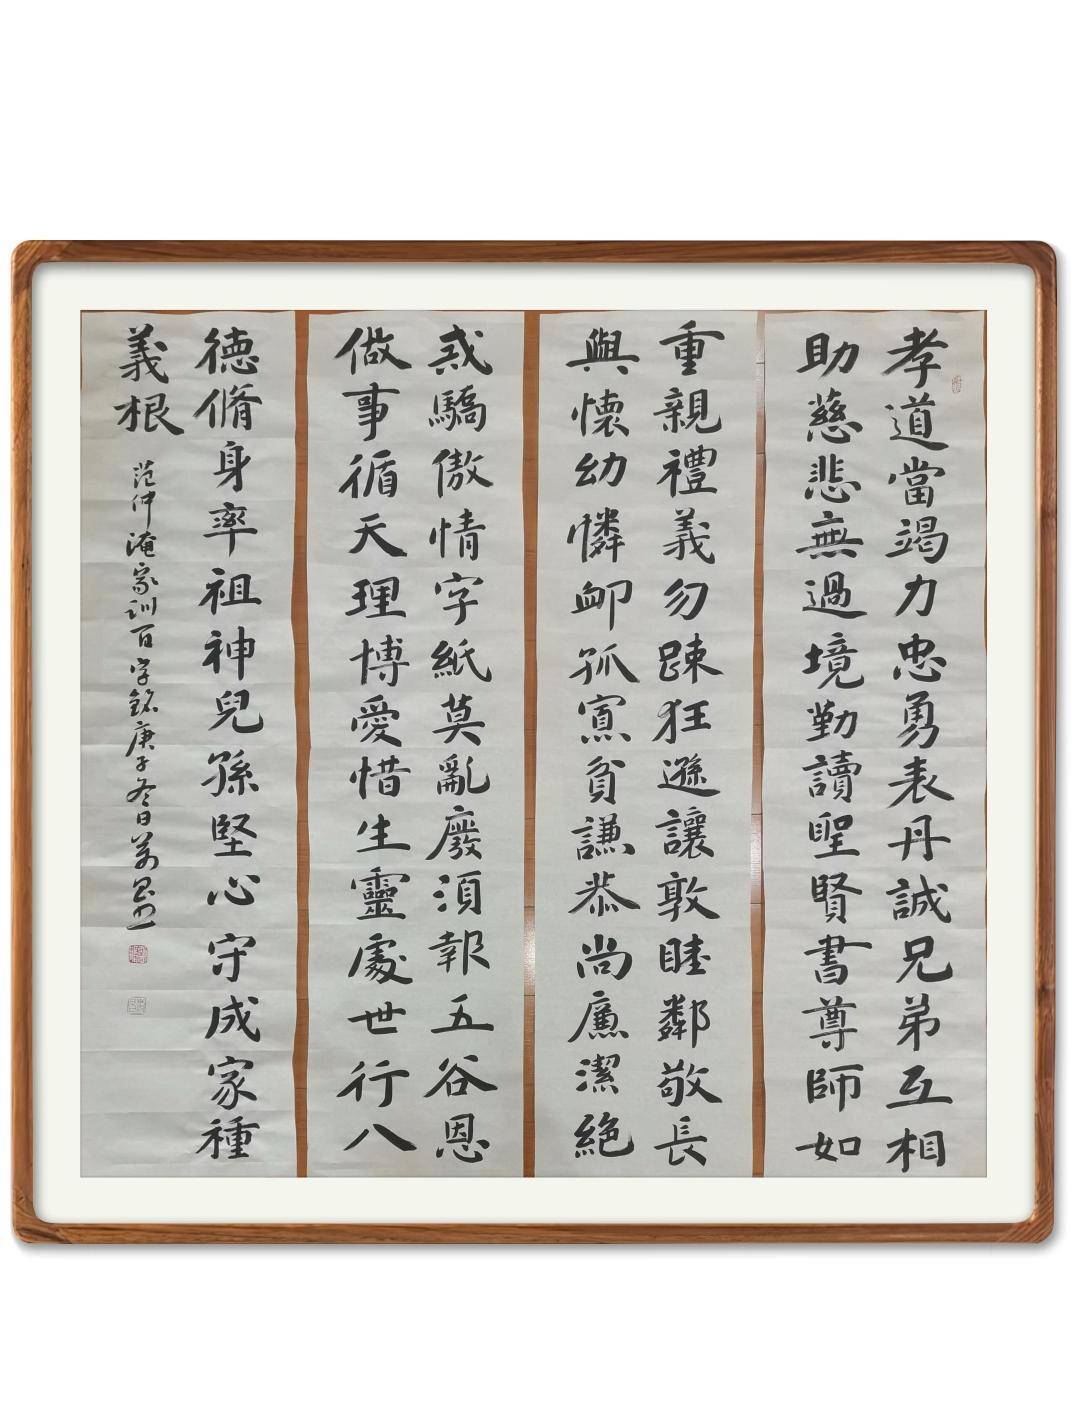 孝道當竭力忠勇表丹誠兄弟互相
助慈悲無過境勤讀聖賢書尊師如
重親禮義勿踈狂遜讓敦睦鄰敬長
與懷幼憐衈孤寡貧謙恭尚廉潔絕
戒驕傲情字紙莫亂廢須報五谷恩
做事循天理博愛惜生靈處世行八
德脩身率祖神兒孫堅心守成家種
義根
范仲淹家訓百字銘庚子冬日